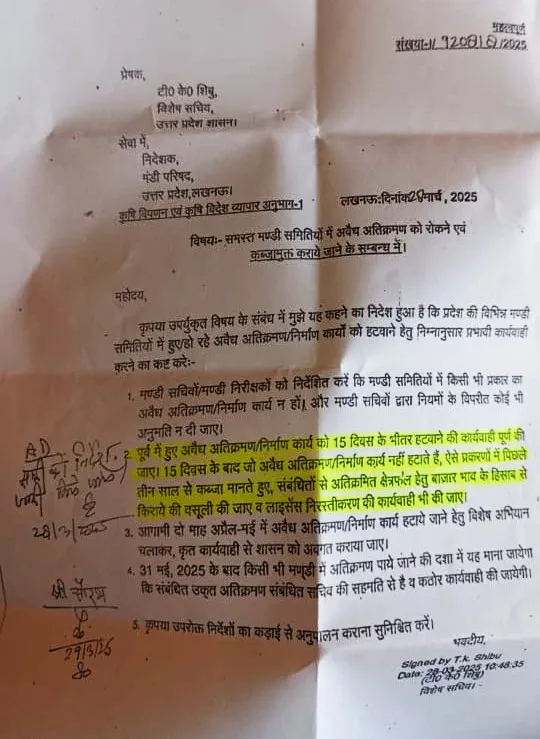 महत्वपूर्ण
संख्या-I/920818/2025
प्रेषक,
टी0 के0 शिबु,
विशेष सचिव,
उत्तर प्रदेश शासन।
सेवा में,
निदेशक,
मंडी परिषद,
उत्तर प्रदेश,लखनऊ।
कृषि विपणन एवं कृषि विदेश व्यापार अनुभाग-1
लखनऊ:दिनांक28मार्च, 2025
विषयः- समस्त मण्डी समितियों में अवैध अतिक्रमण को रोकने एवं
कब्जामुक्त कराये जाने के सम्बन्ध में।
महोदय,
कृपया उपर्युकृत विषय के संबंध में मुझे यह कहने का निदेश हुआ है कि प्रदेश की विभिन्न मण्डी
समितियों में हुए/हो रहे अवैध अतिक्रमण/निर्माण कार्यो को हटवाने हेतु निम्नानुसार प्रभावी कार्यवाही
करने का कष्ट करेः-
1. मण्डी सचिवों/मण्डी निरीक्षकों को निर्देशित करें कि मण्डी समितियों में किसी भी प्रकार का
अवैध अतिक्रमण/निर्माण कार्य न हों, और मण्डी सचिवों द्वारा नियमों के विपरीत कोई भी
अनुमति न दी जाए।
2. पूर्व में हुए अवैध अतिक्रमण/निर्माण कार्य को 15 दिवस के भीतर हटवाने की कार्यवाही पूर्ण की
जाए। 15 दिवस के बाद जो अवैध अतिक्रमण/निर्माण कार्य नहीं हटाते हैं, ऐसे प्रकरणों में पिछले
तीन साल से कब्जा मानते हुए, संबंधितों से अतिक्रमित क्षेत्रफल हेतु बाजार भाव के हिसाब से
किराये की वसूली की जाए व लाइसेंस निरस्तीकरण की कार्यवाही भी की जाए।
3. आगामी दो माह अप्रैल-मई में अवैध अतिक्रमण/निर्माण कार्य हटाये जाने हेतु विशेष अभियान
चलाकर, कृत कार्यवाही से शासन को अवगत कराया जाए।
4. 31 मई, 2025 के बाद किसी भी मण्डी में अतिक्रमण पाये जाने की दशा में यह माना जायेगा
कि संबंधित उक्त अतिक्रमण संबंधित सचिव की सहमति से है व कठोर कार्यवाही की जायेगी।
5. कृपया उपरोक्त निर्देशों का कड़ाई से अनुपालन कराना सुनिश्चित करें।
भवदीय,
Signed by T.k. Shibu
Date: 28-03-2025 10:48:35
(टी0 के0 शिबु)
विशेष सचिव।
AD
को निर्देश
28/3/2025
श्री सौरभ
29/3/25